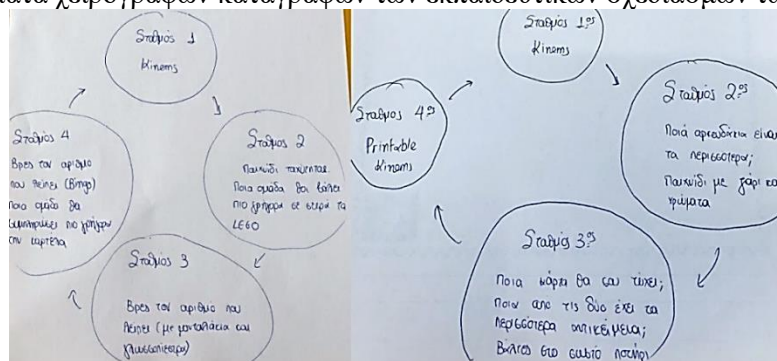 χειρόγραφων καταγραφών των εκπαιδευτικών σχεδιασμών
Σταθμός 1
Kinems
Σταθμός 2
Παιχνίδι ταχύτητας
Ποια ομάδα θα βάλει
πιο γρήγορα σε σειρά τα
LEGO
Σταθμός 3
Βρες τον αριθμό που
λείπει (με μανταλάκια και
γλωσσοπίεστρα)
Σταθμός 4
Βρες τον αριθμό
που λείπει (Bingo)
Ποια ομάδα θα
συμπληρώσει πιο γρήγορα
την καρτέλα
Σταθμός 1ος
Kinems
Σταθμός 2ος
Ποιά αρκουδάκια είναι
τα περισσότερα;
Παιχνίδι με ζάρι και
χρώματα
Σταθμός 3ος
Ποια κάρτα θα σου τύχει;
Ποια από τις δύο έχει τα
περισσότερα αντικείμενα;
Βάλτες στο σωστό ποτήρι
Σταθμός 4ος
Printable
Kinems